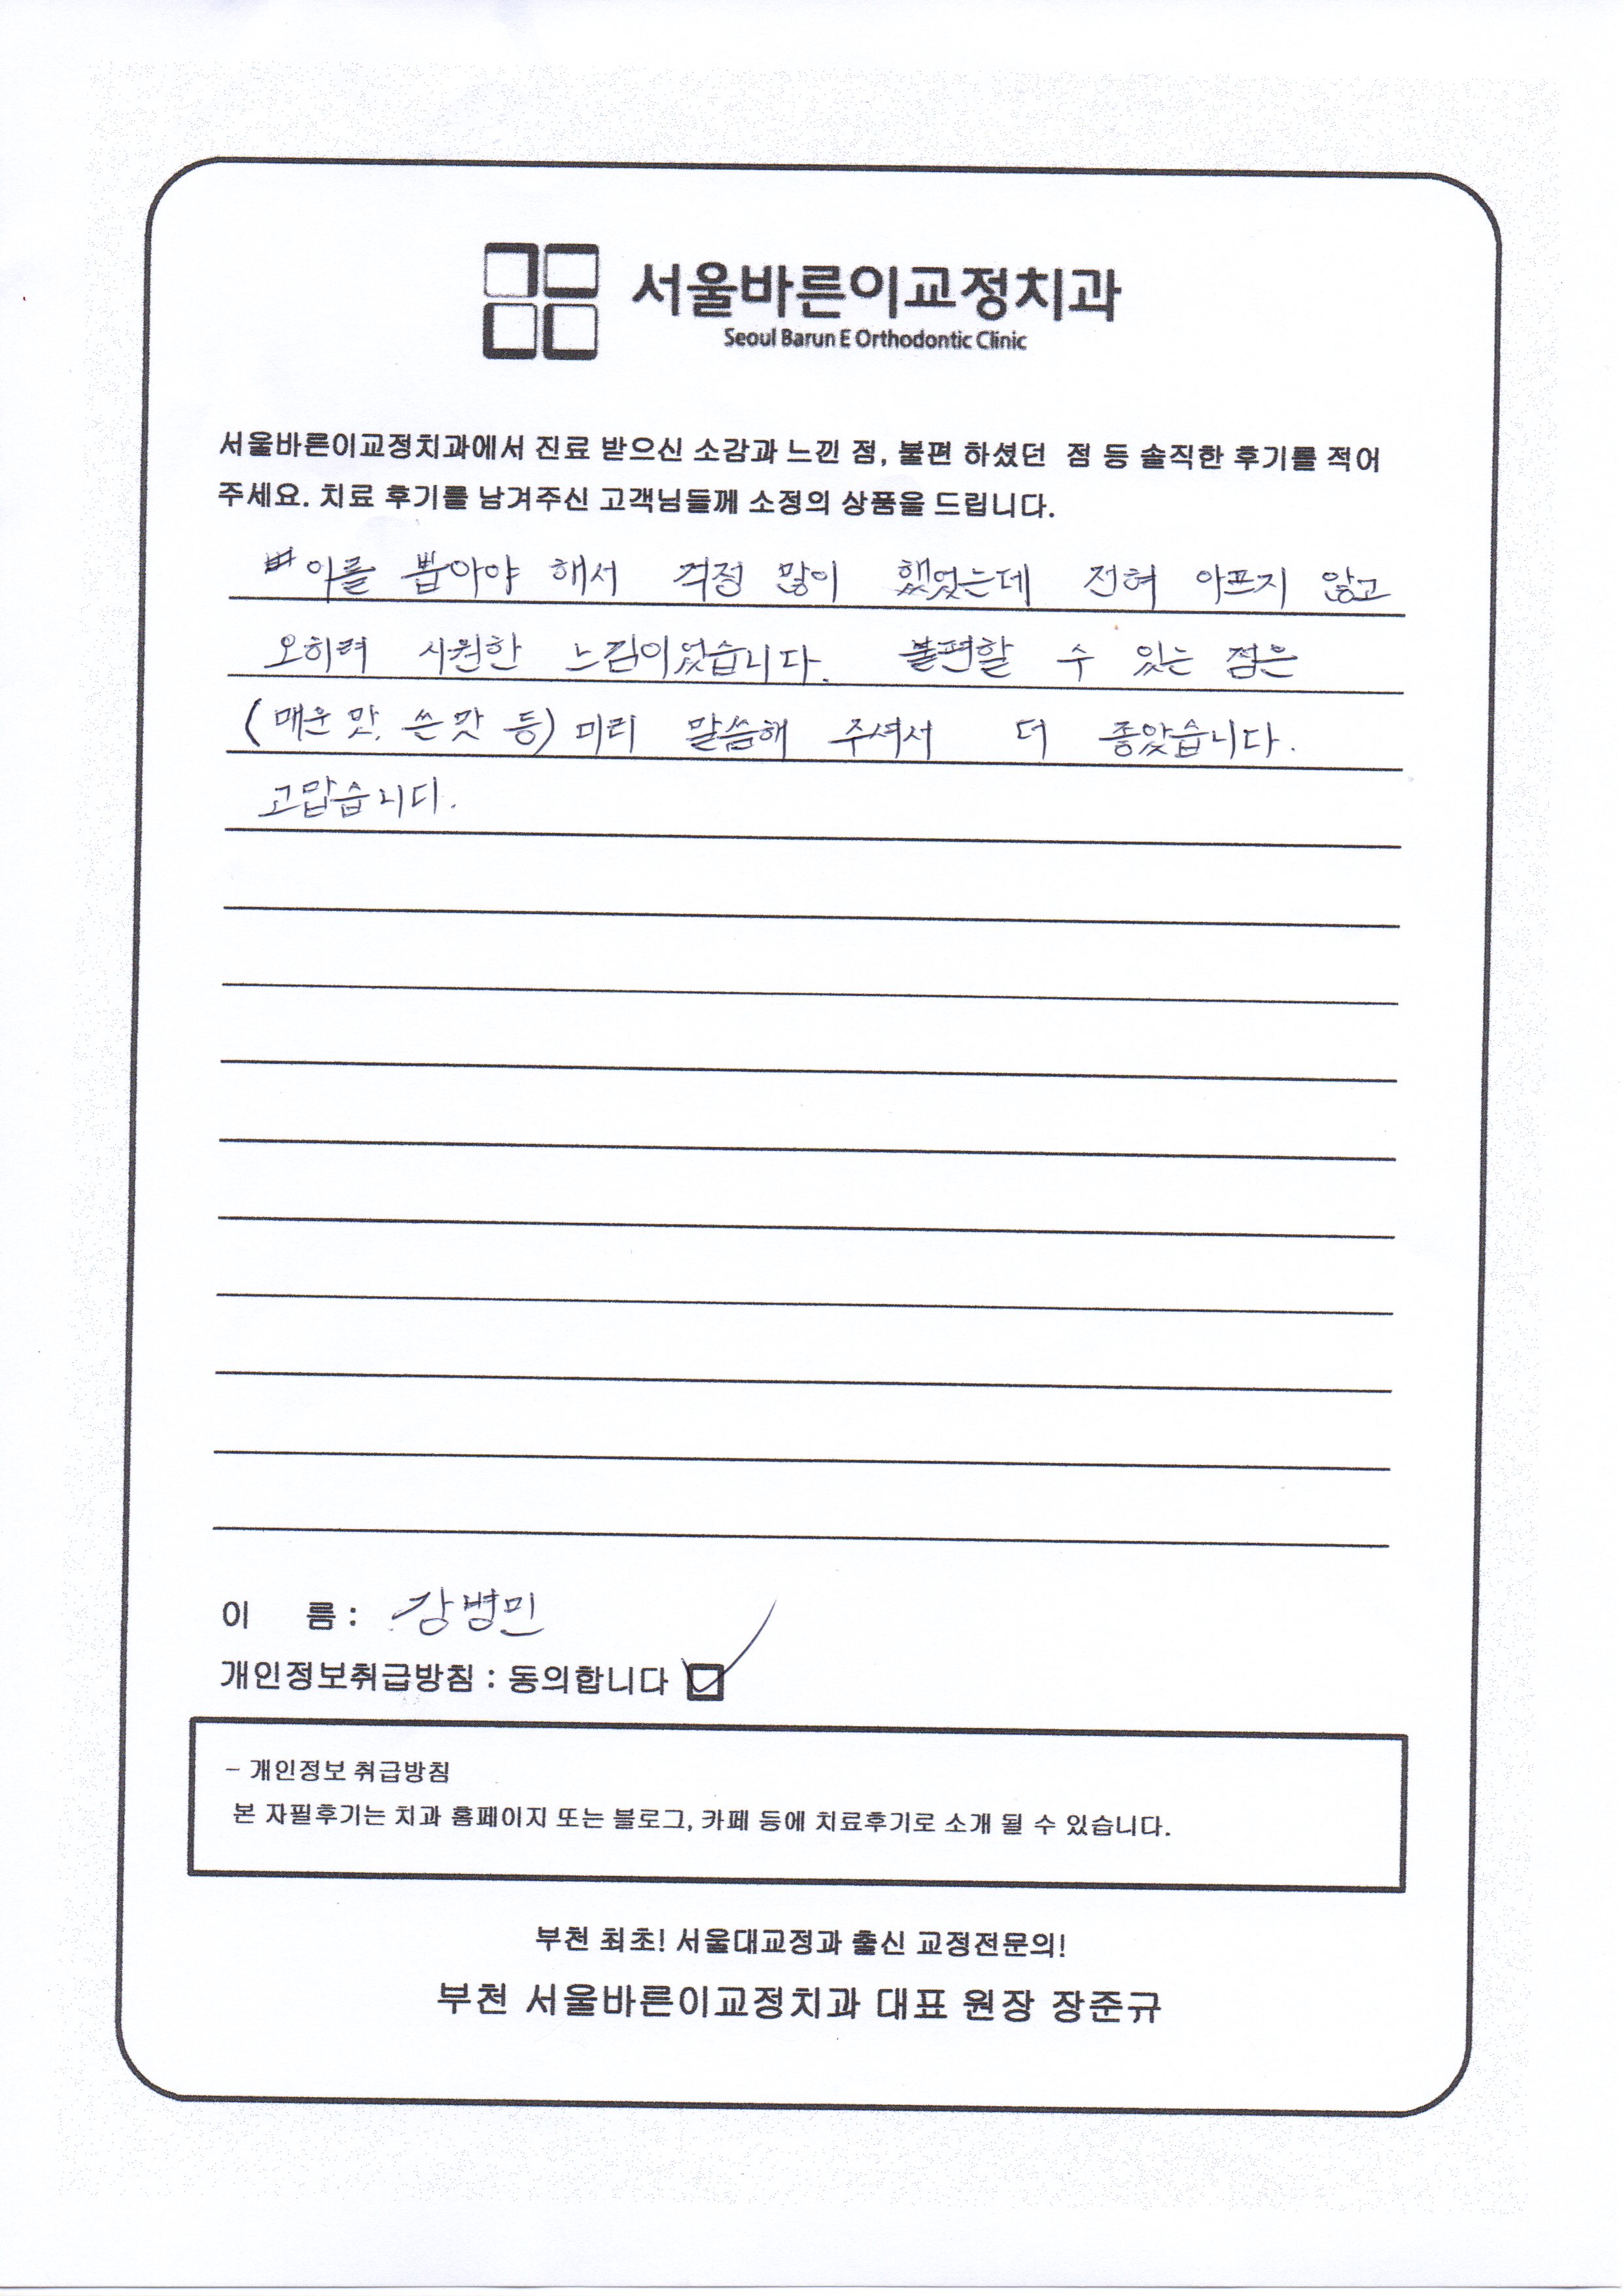 서울바른이교정치과
Seoul Barun E Orthodontic Clinic
서울바른이교정치과에서 진료 받으신 소감과 느낀 점, 불편 하셨던 점 등 솔직한 후기를 적어
주세요. 치료 후기를 남겨주신 고객님들께 소정의 상품을 드립니다.
이를 뽑아야 해서 걱정 많이 했었는데 전혀 아프지 않고
오히려 시원한 느낌이었습니다. 불편할 수 있는 점은
(매운 맛, 쓴 맛 등) 미리 말씀해 주셔서 더 좋았습니다.
고맙습니다.
이 름 : 강병민
개인정보취급방침 : 동의합니다
- 개인정보 취급방침
본 자필후기는 치과 홈페이지 또는 블로그, 카페 등에 치료후기로 소개 될 수 있습니다.
부천 최초! 서울대교정과 출신 교정전문의!
부천 서울바른이교정치과 대표 원장 장준규